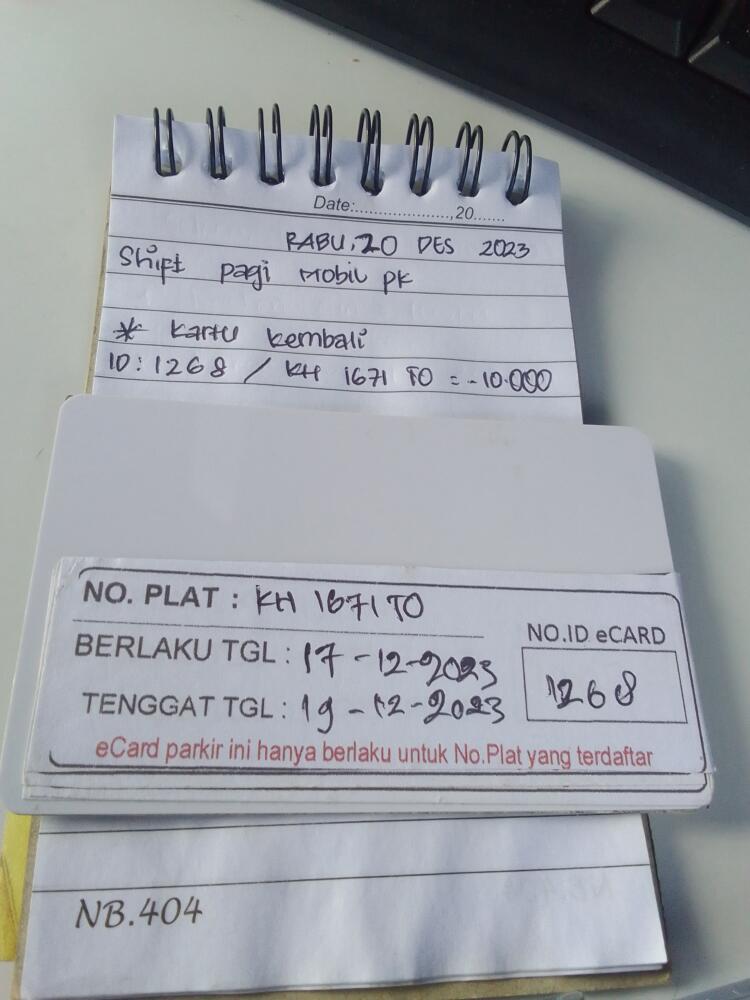 Date:....................,20.......
RABU, 20 DES 2023
Shift pagi Mobil PK
* Kartu kembali
ID : 1268 / KH 1671 TO = -10.000
NO. PLAT : KH 1671 TO
BERLAKU TGL : 17-12-2023
TENGGAT TGL : 19-12-2023
NO.ID eCARD
1268
eCard parkir ini hanya berlaku untuk No.Plat yang terdaftar
NB.404